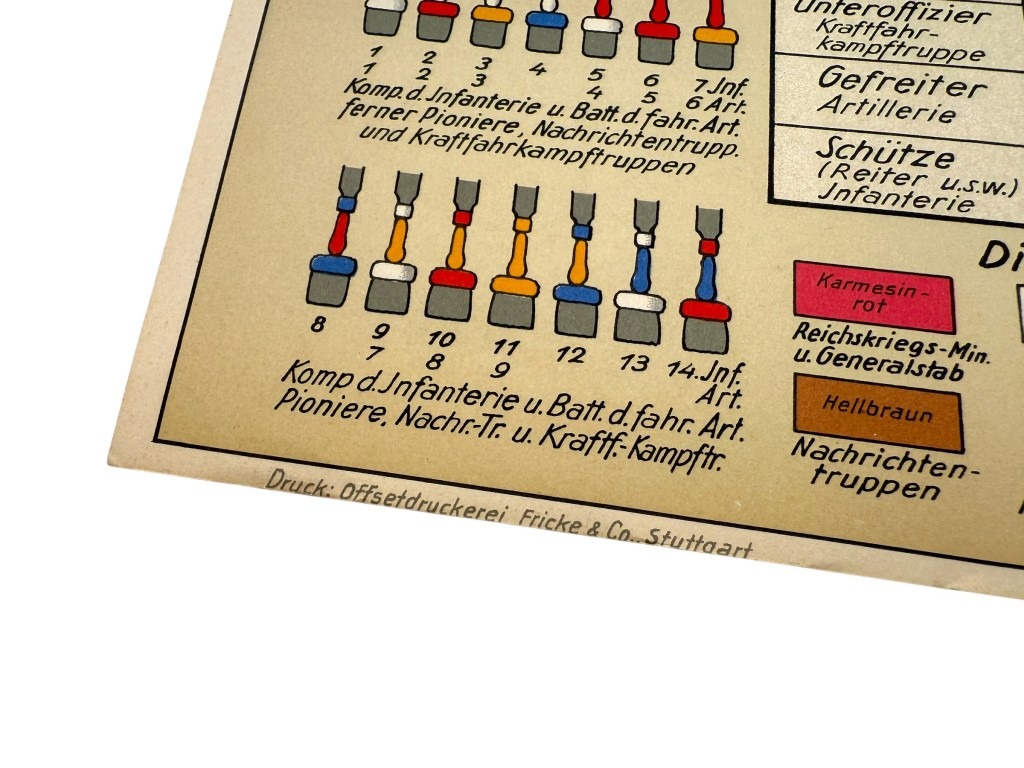 1 2 3 4 5 6 7 Jnf.
1 2 3 4 5 6 Art.
Komp. d. Jnfanterie u. Batt. d. fahr. Art.
ferner Pioniere, Nachrichtentrupp.
und Kraftfahrkampftruppen
8 9 10 11 12 13 14. Jnf.
7 8 9 Art.
Komp d. Jnfanterie u. Batt. d. fahr. Art.
Pioniere, Nachr.-Tr. u. Kraftf.-Kampftr.
Druck: Offsetdruckerei Fricke & Co., Stuttgart
Unteroffizier
Kraftfahr-
kampftruppe
Gefreiter
Artillerie
Schütze
(Reiter u.s.w.)
Jnfanterie
Di
Karmesin-
rot
Reichskriegs-Min.
u. Generalstab
Hellbraun
Nachrichten-
truppen